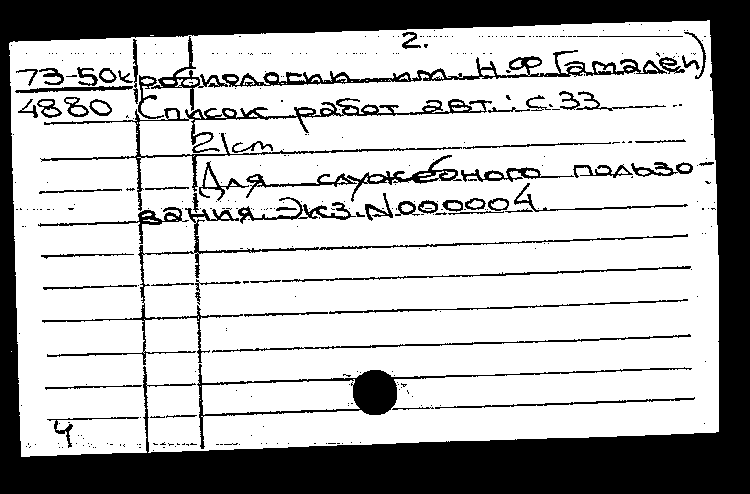 2.
73-50к робиологии им. Н.Ф Гамалеи)
4880 Список работ авт.: с. 33
21 cm.
Для служебного пользо-
вания. Экз. N000004.
4